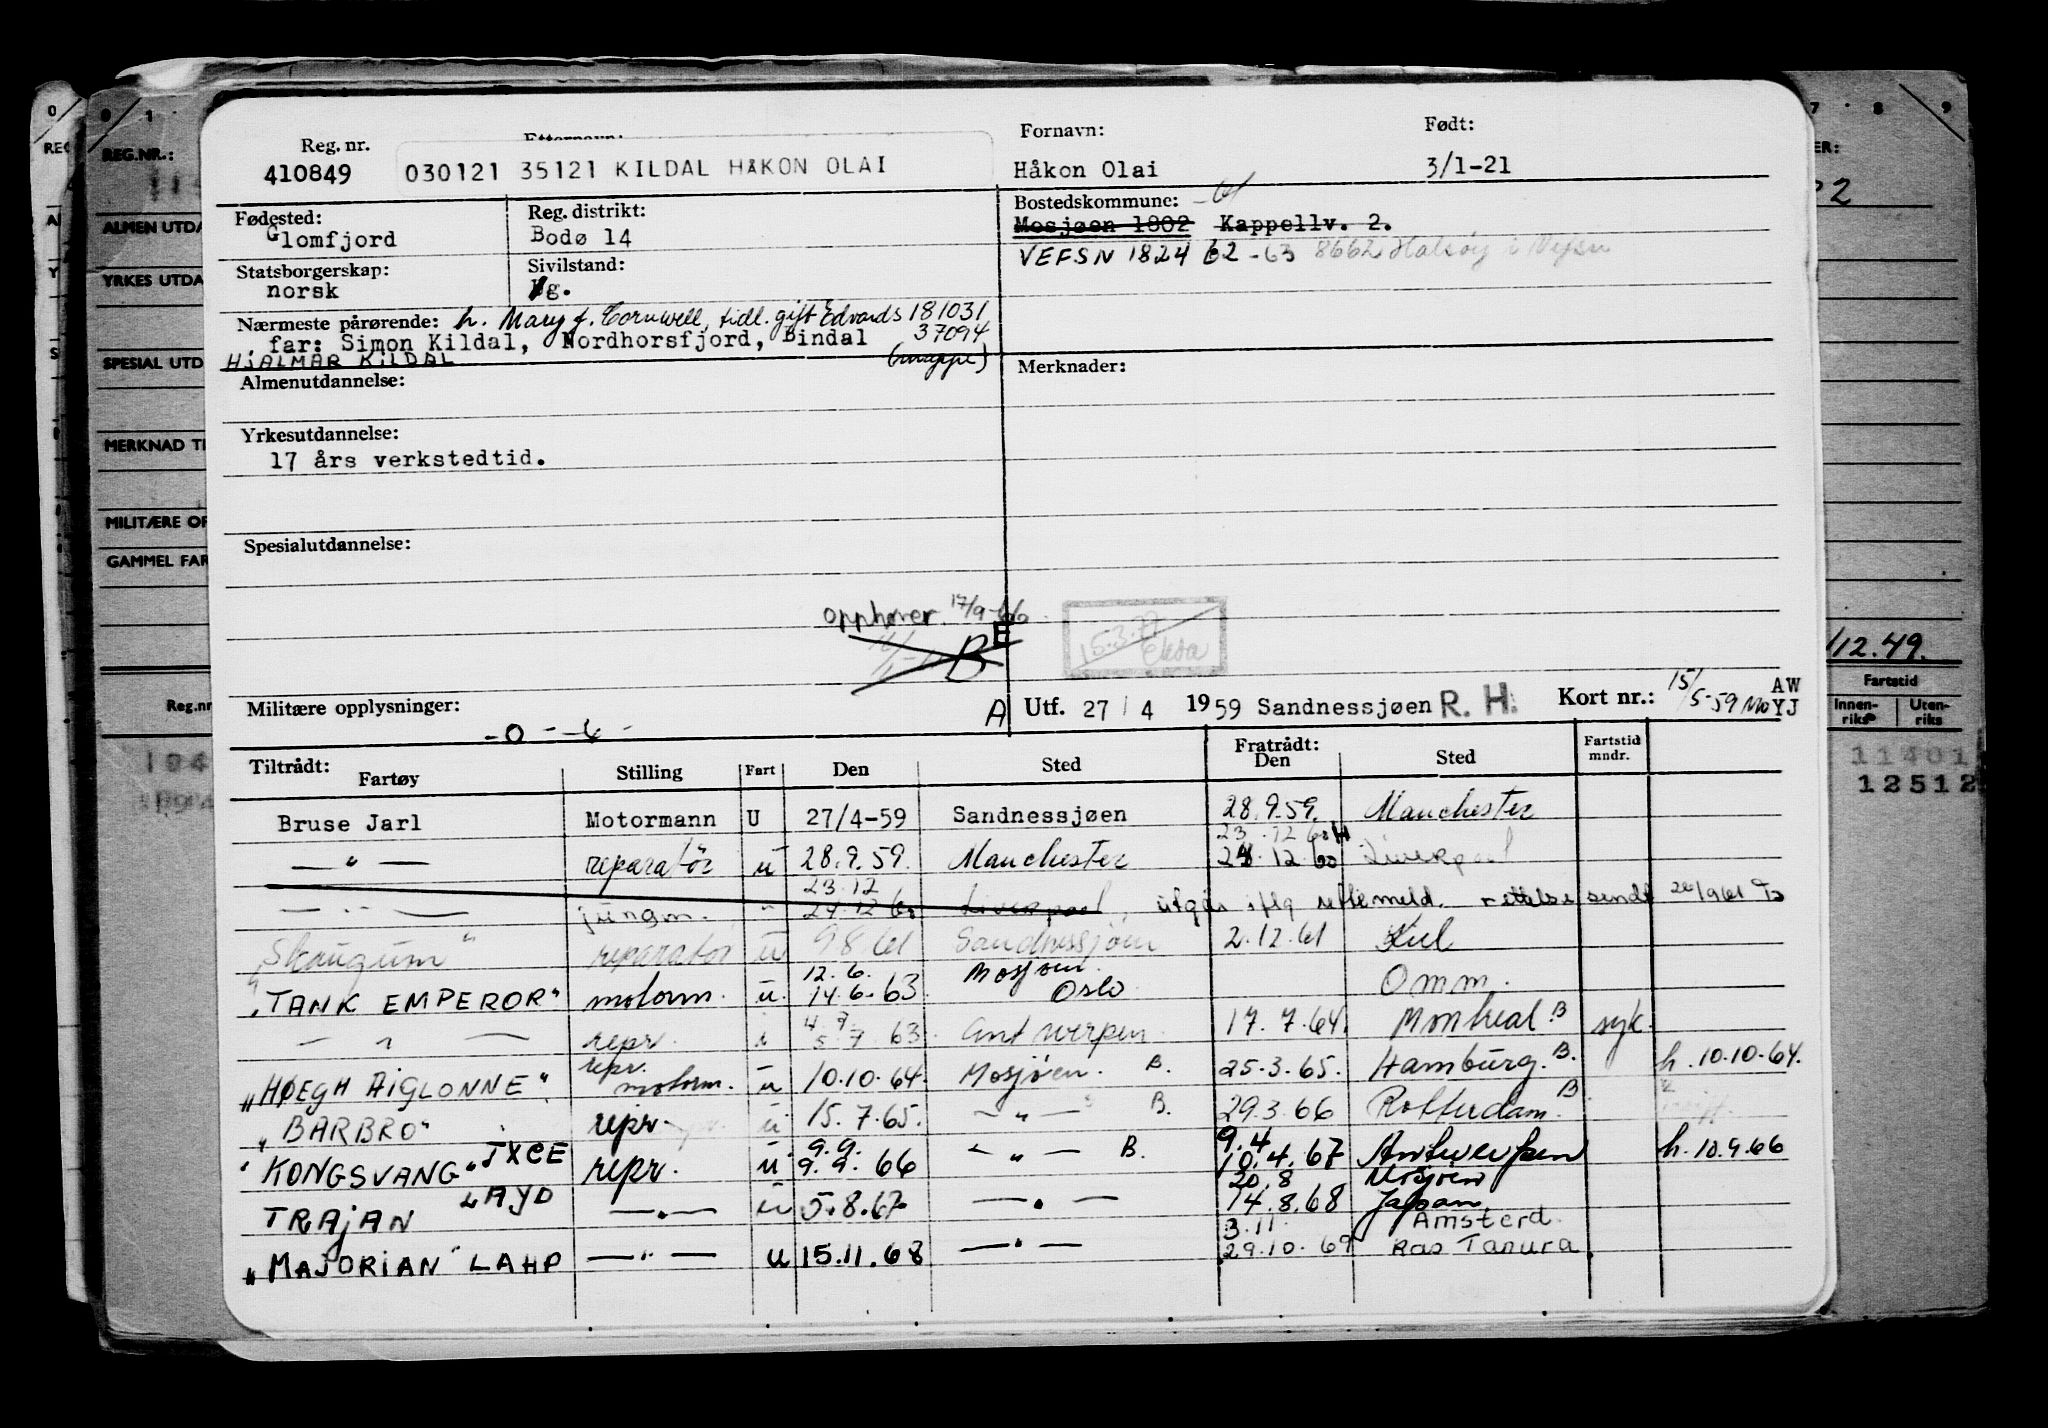 Reg. nr. Etternavn: Fornavn: Født:
410849 030121 35121 KILDAL HÅKON OLAI Håkon Olai 3/1-21
Fødested: Reg. distrikt: Bostedskommune: -61
Glomfjord Bodø 14 Mosjøen 1802 Kappellv. 2.
VEFSN 1824 62-63 8662 Halsøy i Vefsn
Statsborgerskap: Sivilstand:
norsk g.
Nærmeste pårørende: h. Mary f. Cornwell, tidl. gift Edvards 181031
far: Simon Kildal, Nordhorsfjord, Bindal 37094
HJALMAR KILDAL (mappe)
Almenutdannelse: Merknader:
Yrkesutdannelse:
17 års verkstedtid.
Spesialutdannelse:
opphører 17/9-66
E
B
15.3.77
Militære opplysninger: A Utf. 27/4 1959 Sandnessjøen R. H. Kort nr.: 15/5-59 Mo AW
YJ
-0-
Tiltrådt: Fartøy Stilling Fart Den Sted Fratrådt: Den Sted Fartstid mndr.
Bruse Jarl Motormann U 27/4-59 Sandnessjøen 28.9.59. Manchester
23.12 60
— " — reparatör u 28.9.59. Manchester 24.12.60 Liverpool
23.12
— " — jungm. " 24.12 60 Liverpool, utgår iflg rettemeld. rettelse sendt 26/9 61
Skaugum " reparatør u 9.8.61 Sandnessjøen 2.12.61 Kiel
12.6. Mosjøen
"TANK EMPEROR" motorm. u. 14.6.63 Oslo Omm.
4.7.
— " — repr. u 5.7.63 Antwerpen 17.7.64. Montreal B syk.
repr.
"HØEGH AIGLONNE" motorm. u 10.10.64. Mosjøen. B. 25.3.65. Hamburg. B. h. 10.10.64.
"BARBRO" repr. u 15.7.65. — " — B. 29.3.66 Rotterdam. B
9.9. 9.4
"KONGSVANG" JXCE repr. u 9.9.66 — " — B. 10.4.67 Antwerpen h. 10.9.66
20.8 Mosjøen
TRAJAN LAYD — " — u 5.8.67 — " — 14.8.68 Japan
3.11. Amsterd.
"MAJORIAN" LAHP — " — u 15.11.68 — " — 29.10.69 Ras Tanura
REG.NR.:
YRKES UTDA
SPESIAL UTD
MILITÆRE OP
GAMMEL FAR
Reg.nr
12.49.
Fartstid
Innen-riks Uten-riks
11401
12512